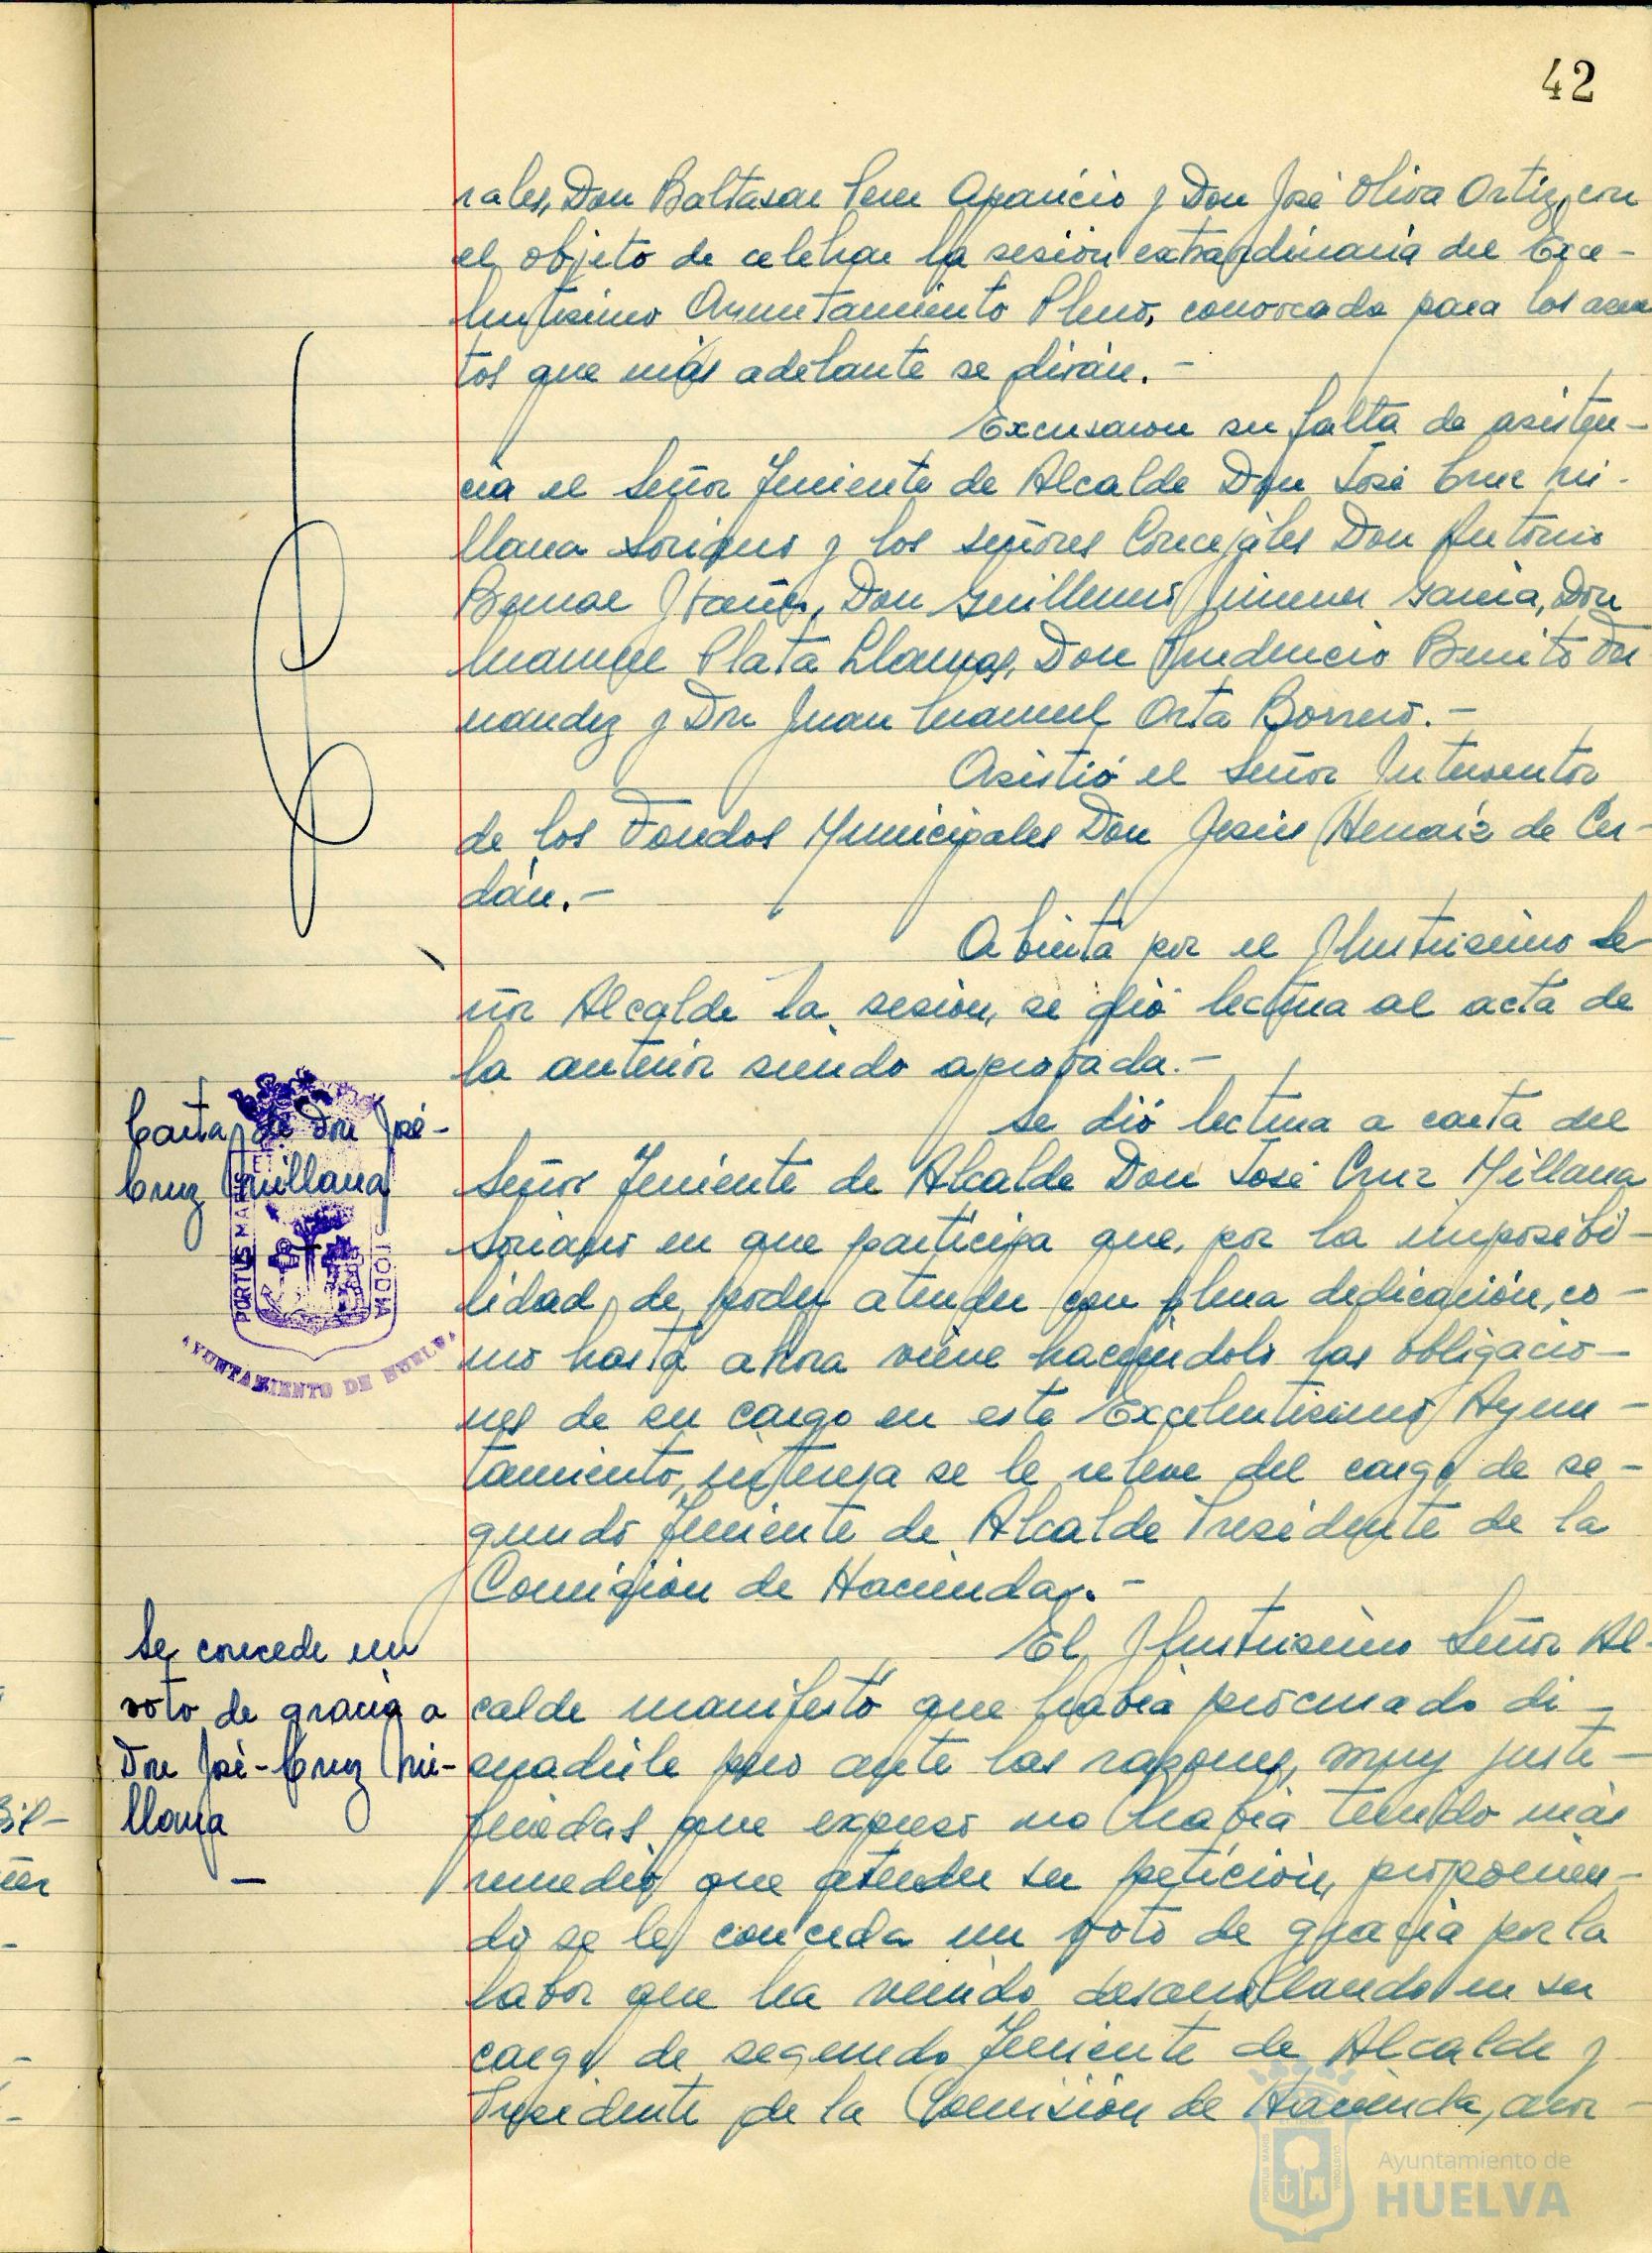 42
rales, Don Baltasar Aparicio y Don José Oliva Ortiz, con
el objeto de celebrar la sesión extraordinaria del Exce-
lentísimo Ayuntamiento Pleno, convocada para los asun
tos que más adelante se dirán.-
Excusaron su falta de asisten-
cia el Señor Teniente de Alcalde Don José Cruz Mi-
llana Soriano y los señores Concejales Don Antonio
Don Guillermo Jimenez Garcia, Don
Manuel Plata Llamas, Don Prudencio Benito Fer
nandez y Don Juan Manuel Orta Borrero.-
Asistió el Señor Interventor
de los Fondos Municipales Don Jesús Henaiz de Cer-
dán.-
Abierta por el Ilustrisimo Se
ñor Alcalde la sesión, se dió lectura al acta de
la anterior siendo aprobada.-
Carta de Don José-
Cruz Millana
Se dió lectura a carta del
Señor Teniente de Alcalde Don José Cruz Millana
Soriano en que participa que, por la imposibi-
lidad de poder atender con plena dedicación, co-
mo hasta ahora viene haciendolo las obligacio-
nes de su cargo en este Excelentisimo Ayun-
tamiento, interesa se le releve del cargo de se-
gundo Teniente de Alcalde Presidente de la
Comision de Hacienda.-
PORTUS MARIS ET
CUSTODIA
AYUNTAMIENTO DE HUELVA
Se concede un
voto de gracia a
Don José-Cruz Mi-
llana
El Ilustrisimo Señor Al-
calde manifestó que habia procurado di-
suadirle pero ante las razones, muy justi-
ficadas que expuso no habia tenido más
remedio que atender su petición, proponien-
do se le conceda un voto de gracia por la
labor que ha venido desarrollando en su
cargo de segundo Teniente de Alcalde y
Presidente de la Comisión de Hacienda, acor-
Ayuntamiento de
HUELVA